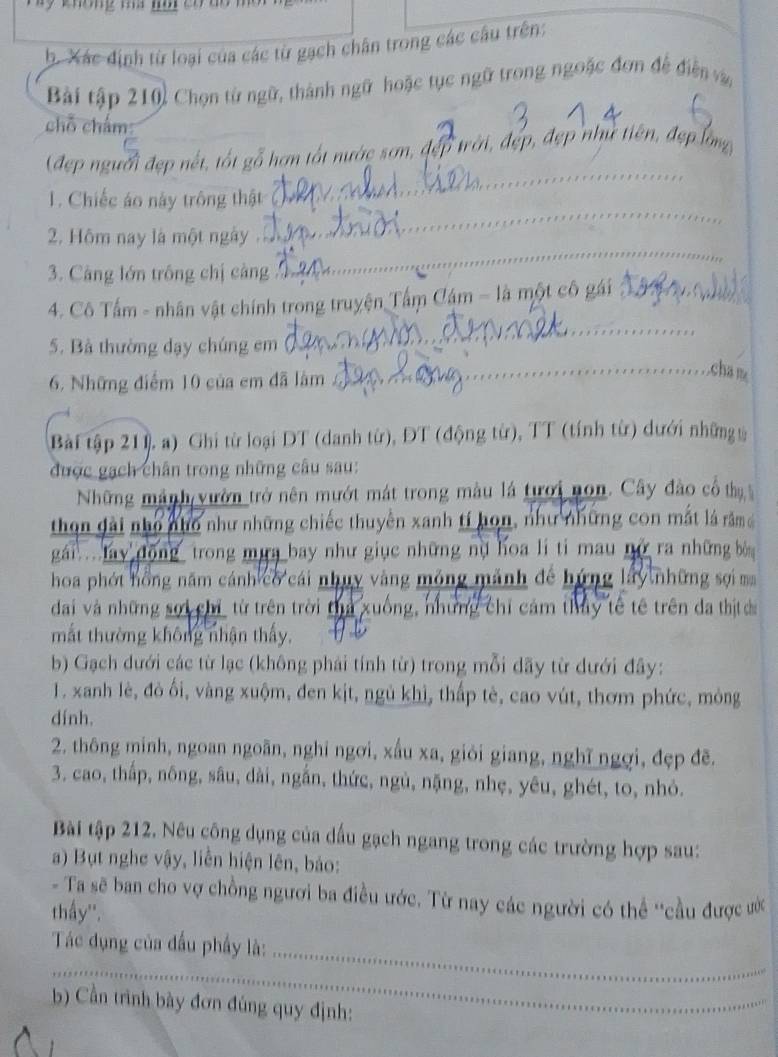 b. Xác định từ loại của các từ gạch chân trong các câu trên:
Bài tập 210. Chọn từ ngữ, thành ngữ hoặc tục ngữ trong ngoặc đơn để điền vào
chỗ chấm:
2 3 1 4 6
5
(đẹp người đẹp nết, tốt gỗ hơn tốt nước sơn, đẹp trời, đẹp, đẹp như tiên, đẹp lòng)
1. Chiếc áo này trông thật đẹp như tiên
2. Hôm nay là một ngày đẹp trời
3. Càng lớn trông chị càng đẹp
4. Cô Tấm - nhân vật chính trong truyện Tấm Cám - là một cô gái
5. Bà thường dạy chúng em đẹp người đẹp nết
6. Những điểm 10 của em đã làm đẹp lòng cha mẹ
Bài tập 211. a) Ghi từ loại DT (danh từ), ĐT (động từ), TT (tính từ) dưới những từ
được gạch chân trong những câu sau:
Những mảnh vườn trở nên mướt mát trong màu lá tươi non. Cây đào cổ thụ,
thon dài nho nhỏ như những chiếc thuyền xanh tí hon, như những con mắt lá răm
gái....lay động trong mưa bay như giục những nụ hoa li ti mau nở ra những bông
hoa phớt hồng năm cánh có cái nhụy vàng mỏng mảnh để hứng lấy những sợi mưa
dai và những sợi chỉ từ trên trời thả xuống, nhưng chỉ cảm thấy tê tê trên da thịt chứ
mắt thường không nhận thấy.
b) Gạch dưới các từ lạc (không phải tính từ) trong mỗi dãy từ dưới đây:
1. xanh lè, đỏ ối, vàng xuộm, đen kịt, ngủ khì, thấp tè, cao vút, thơm phức, mỏng
dính.
2. thông minh, ngoan ngoãn, nghỉ ngơi, xấu xa, giỏi giang, nghĩ ngợi, đẹp đẽ.
3. cao, thấp, nông, sâu, dài, ngắn, thức, ngủ, nặng, nhẹ, yêu, ghét, to, nhỏ.
Bài tập 212. Nêu công dụng của dấu gạch ngang trong các trường hợp sau:
a) Bụt nghe vậy, liền hiện lên, bảo:
- Ta sẽ ban cho vợ chồng ngươi ba điều ước. Từ nay các người có thể "cầu được ước
thấy".
Tác dụng của dấu phẩy là:
b) Cần trình bày đơn đúng quy định: